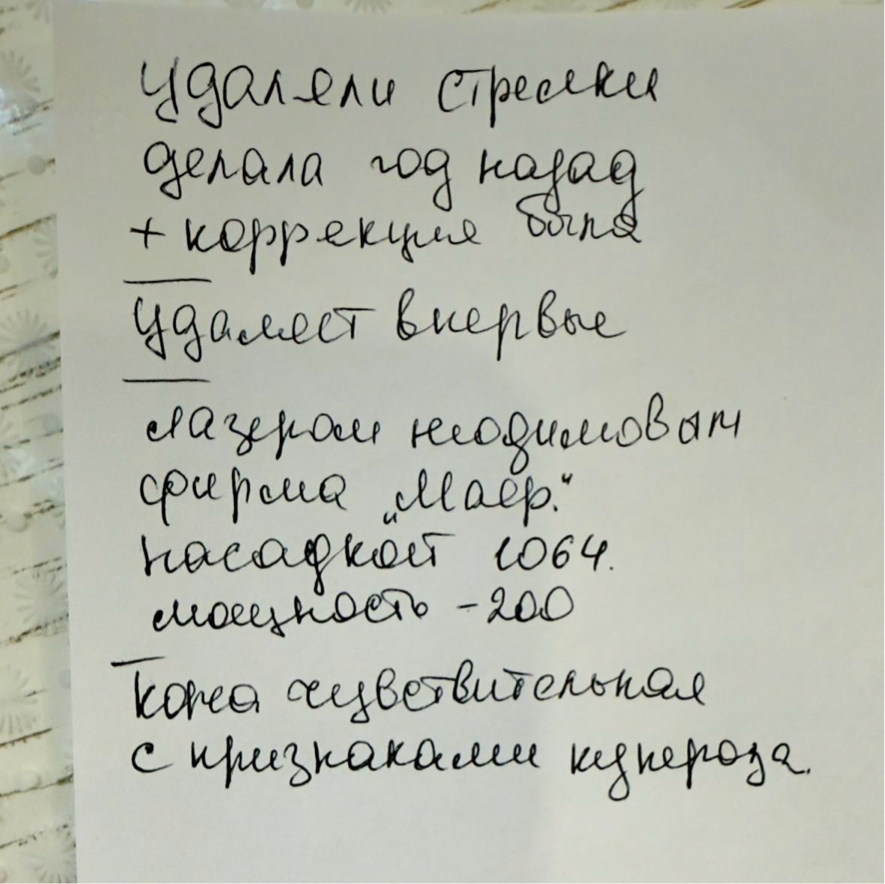 удаляли стрелки
делала год назад
+ коррекция была
удаляет впервые
лазером неодимовым
фирма „Маер."
насадкой 1064.
мощность - 200
кожа чувствительная
с признаками купероза.